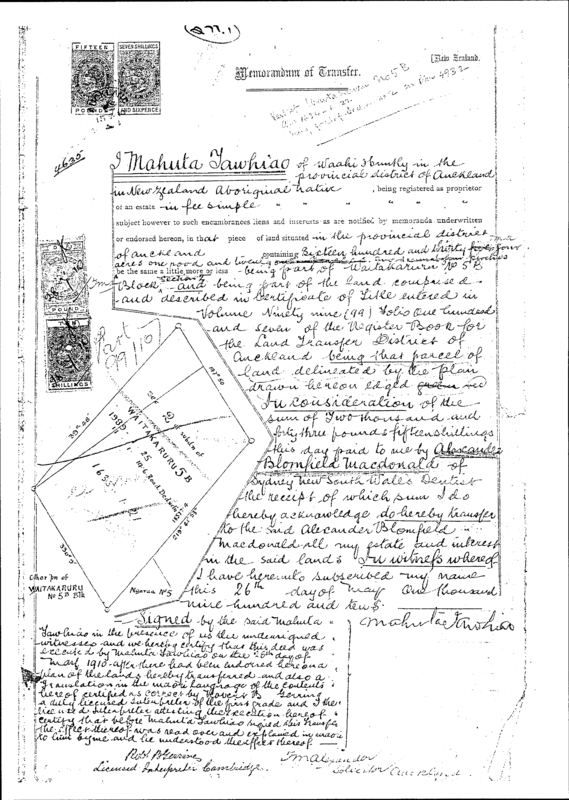 FIFTEEN
POUNDS
SEVEN SHILLINGS
AND SIXPENCE
[New Zealand.
Memorandum of Transfer.
4625
I Mahuta Tawhiao of Waahi Huntly in the
provincial district of Auckland
in New Zealand Aboriginal native , being registered as proprietor
of an estate in fee simple " " " " "
subject however to such encumbrances liens and interests as are notified by memoranda underwritten
or endorsed hereon, in that piece of land situated in the provincial district
of Auckland containing Sixteen hundred and thirty four
acres one rood and twenty
be the same a little more or less being part of Waitakaruru No 5B
Block, and being part of the land comprised
and described in Certificate of Title entered in
Volume Ninety nine (99) Folio One hundred
and seven of the Register Book for
the Land Transfer District of
Auckland being that parcel of
land delineated by the plan
drawn hereon edged
In consideration of the
sum of Two thousand and
forty three pounds fifteen shillings
this day paid to me by Alexander
Blomfield Macdonald of
Sydney New South Wales Dentist
the receipt of which sum I do
hereby acknowledge do hereby transfer
to the said Alexander Blomfield
Macdonald all my estate and interest
in the said land In witness whereof
I have hereunto subscribed my name
this 26th day of May One thousand
nine hundred and ten
POUND
SHILLINGS
Part
99/107
Sec 2 of whole of
WAITAKARURU 5B
Other Pn of
WAITAKARURU
No 5B Blk
Ngatua No 5
Signed by the said Mahuta
Tawhiao in the presence of us the undersigned
witnesses and we hereby certify that this deed was
executed by Mahuta Tawhiao on the 26th day of
May 1910 after there had been endorsed hereon a
plan of the lands hereby transferred and also a
translation in the maori language of the contents
hereof certified as correct by
a duly licensed Interpreter of the first grade and I the
licensed Interpreter attesting the execution hereof
certify that before Mahuta Tawhiao signed this transfer
the effect thereof was read over and explained in maori
to him by me and he understood the effect thereof
Mahuta Tawhiao
Licensed Interpreter Cambridge.
Solicitor Auckland